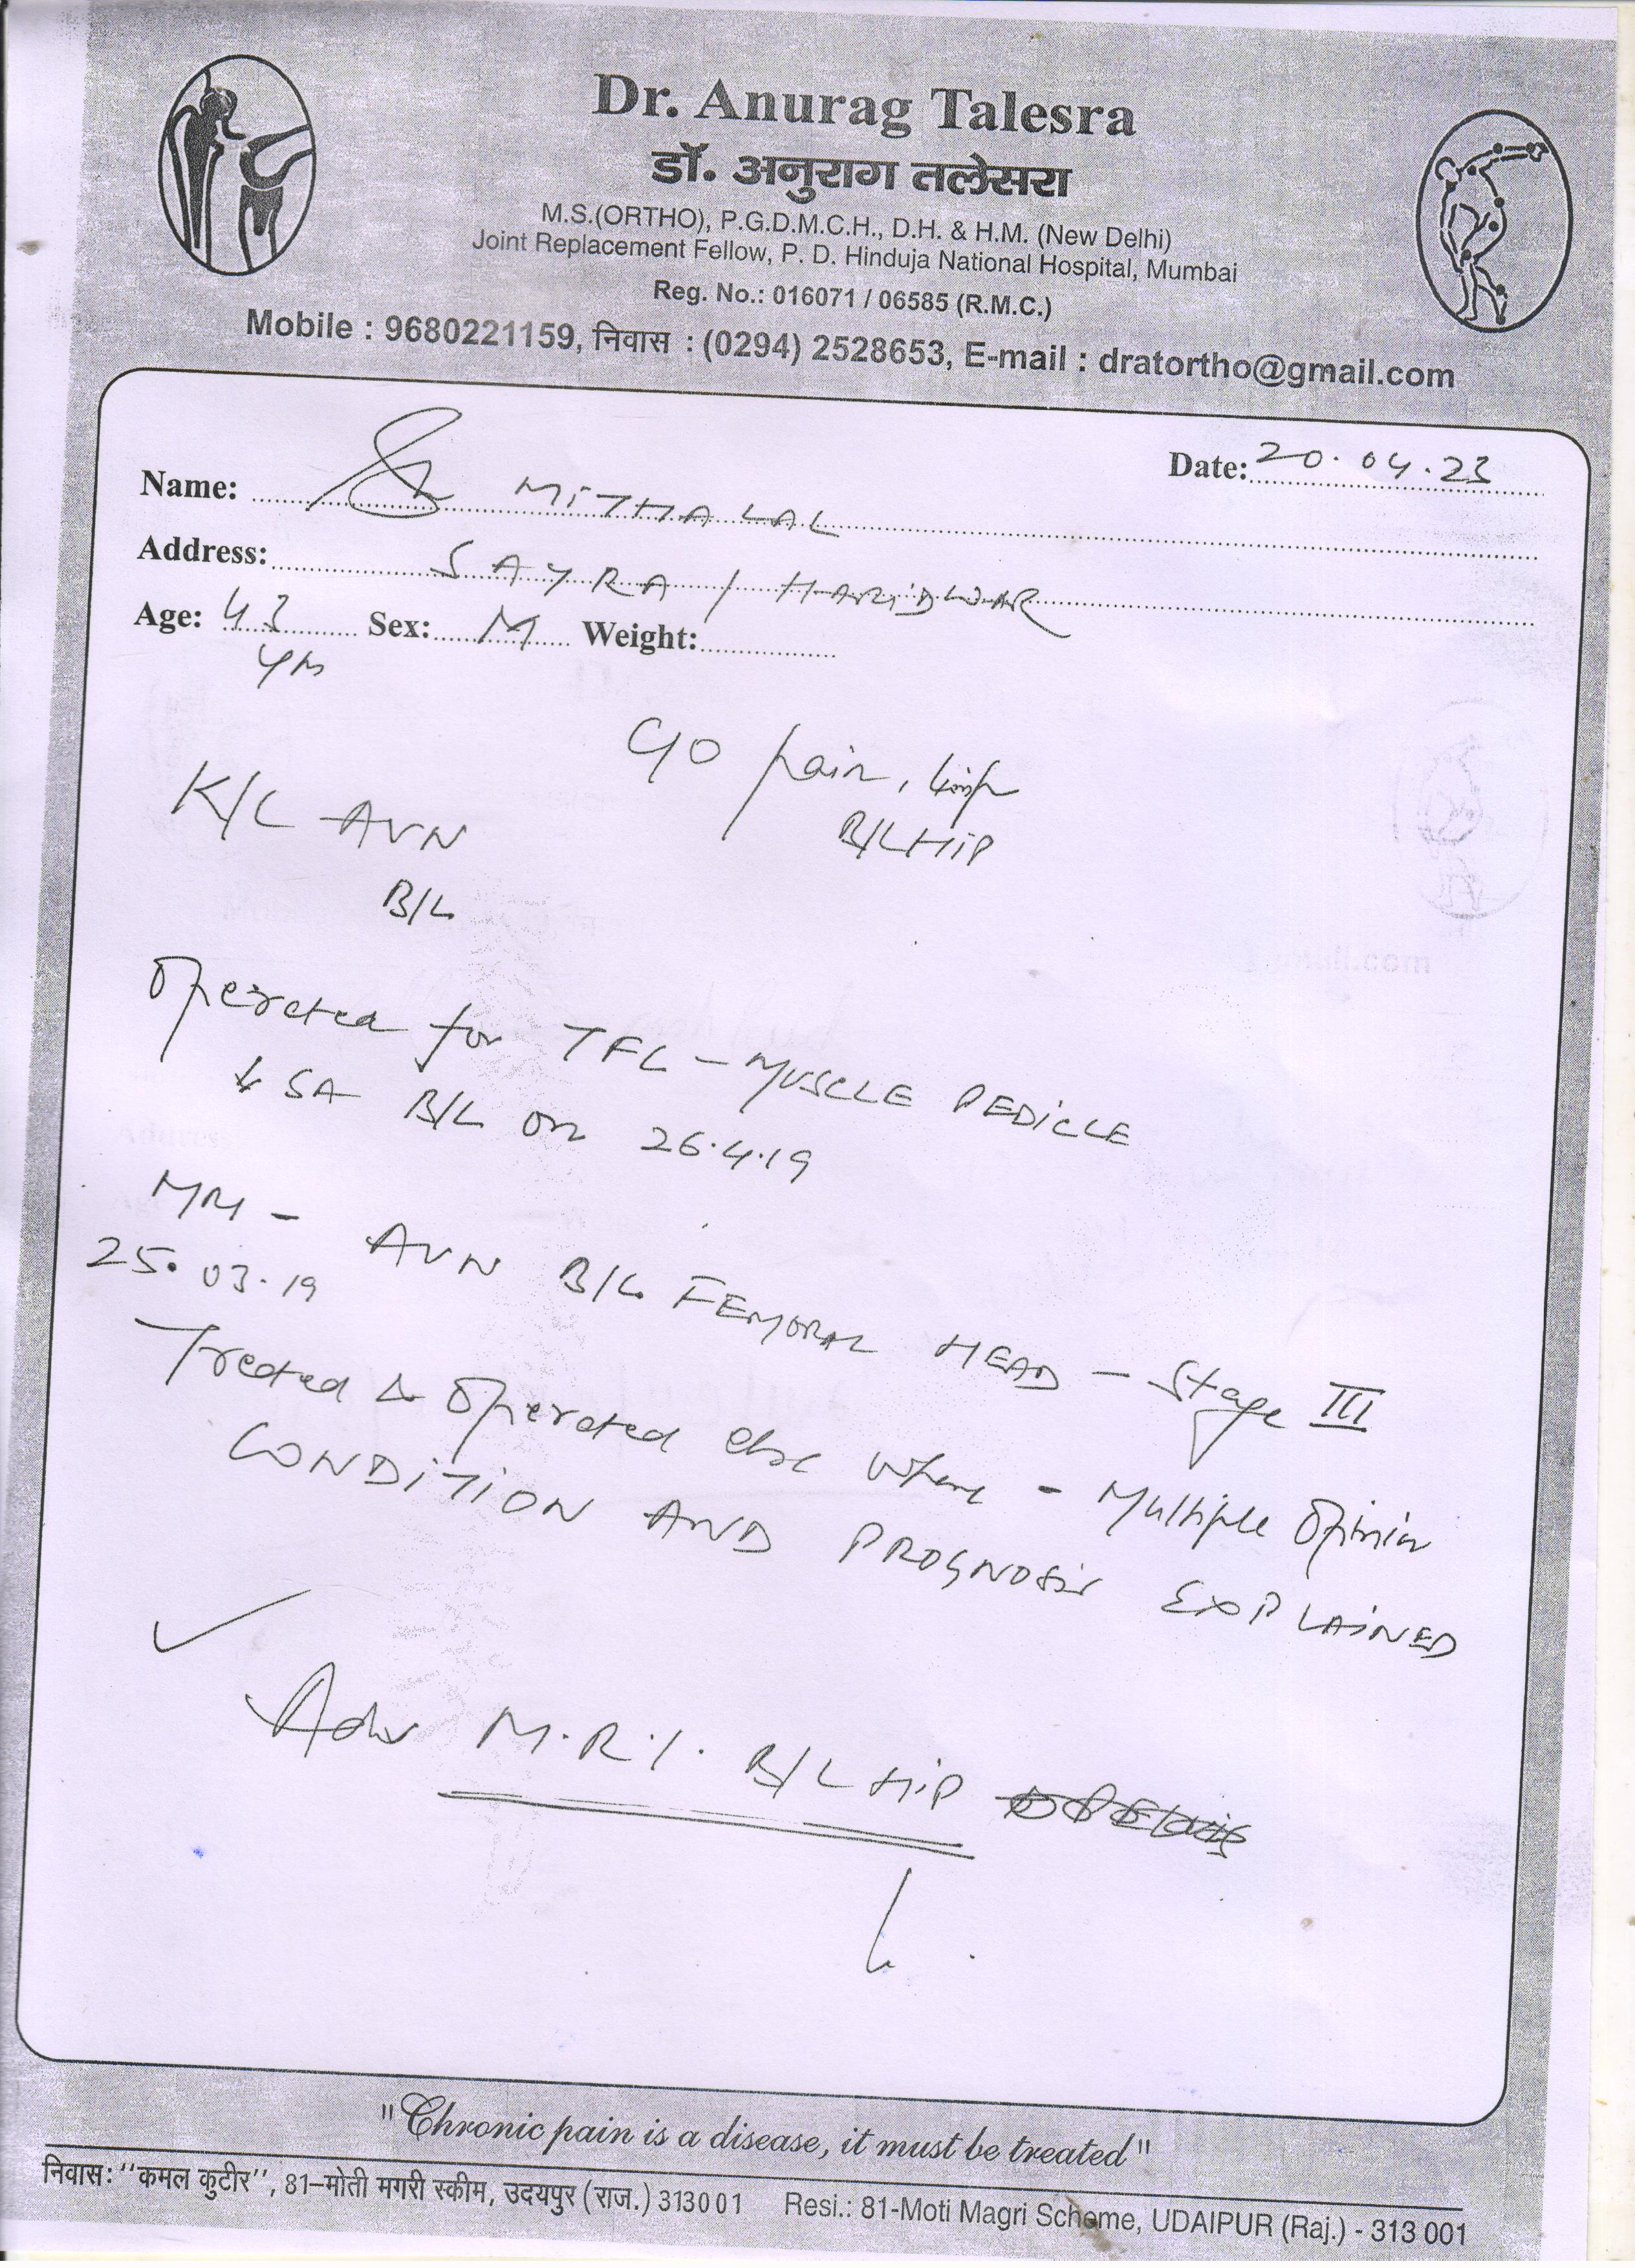 Dr. Anurag Talesra
डॉ. अनुराग तलेसरा
M.S.(ORTHO), P.G.D.M.C.H., D.H. & H.M. (New Delhi)
Joint Replacement Fellow, P. D. Hinduja National Hospital, Mumbai
Reg. No.: 016071 / 06585 (R.M.C.)
Mobile : 9680221159, निवास : (0294) 2528653, E-mail : dratortho@gmail.com
Date: 20.04.23
Name: Sh MITHALAL
Address: SAYRA / HARIDWAR
Age: 43 Sex: M Weight:
Yrs
C/O pain, limp
B/L HIP
K/C AVN
B/L
Operated for TFL - MUSCLE PEDICLE
SA B/L on 26.4.19
MRI - AVN B/L FEMORAL HEAD - Stage III
25.03.19
Treated & Operated else where - Multiple Opinion
CONDITION AND PROGNOSIS EXPLAINED
Adv M.R.I. B/L HIP
"Chronic pain is a disease, it must be treated"
निवास: "कमल कुटीर", 81–मोती मगरी स्कीम, उदयपुर (राज.) 313001 Resi.: 81-Moti Magri Scheme, UDAIPUR (Raj.) - 313 001